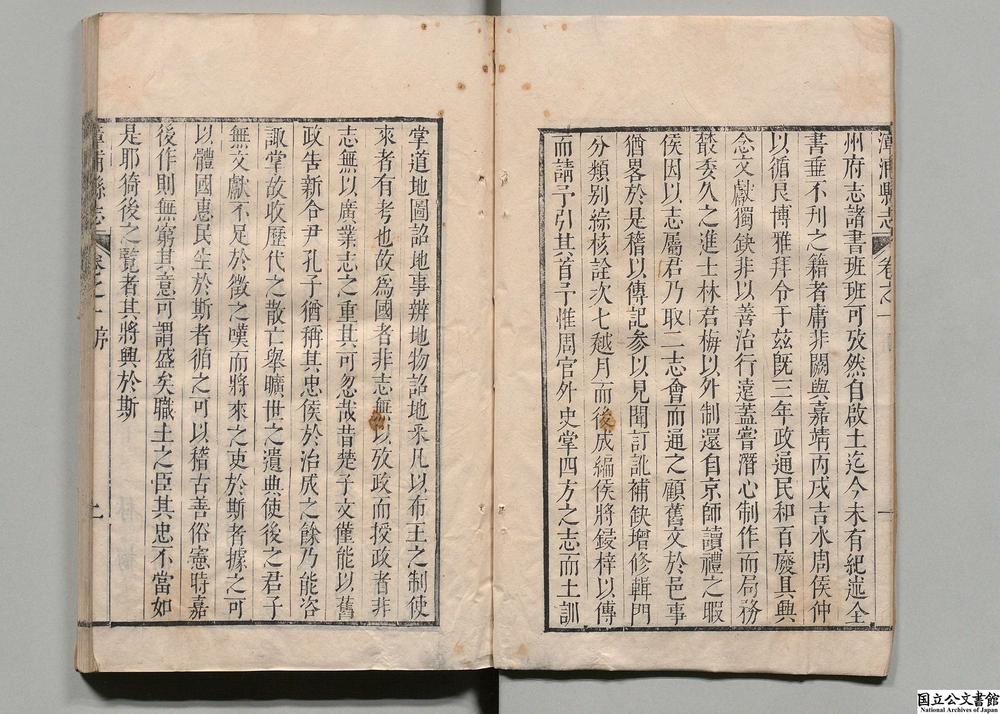 漳浦縣志 卷之一
州府志諸書班班可攷然自啟土迄今未有紀述全
書垂不刊之籍者庸非闕與嘉靖丙戌吉水周侯仲
以循良博雅拜令于茲旣三年政通民和百廢具興
念文獻獨缺非以善治行遠蓋嘗潛心制作而局務
叢委久之進士林君梅以外制還自京師讀禮之暇
侯因以志屬君乃取二志會而通之顧舊文於邑事
猶畧於是稽以傳記參以見聞訂訛補缺增修輯門
分類別綜核詮次七越月而後成編侯將鋟梓以傳
而請予引其首予惟周官外史掌四方之志而土訓
掌道地圖詔地事辨地物詔地求凡以布王之制使
來者有考也故爲國者非志無以攷政而授政者非
志無以廣業志之重其可忽哉昔楚子文僅能以舊
政告新令尹孔子猶稱其忠侯於治成之餘乃能咨
諏掌故收歷代之散亡舉曠世之遺典使後之君子
無文獻不足於徵之嘆而將來之吏於斯者據之可
以體國惠民生於斯者循之可以稽古善俗憲時嘉
後作則無窮其意可謂盛矣職土之臣其忠不當如
是耶猗後之覽者其將興於斯
漳浦縣志 卷之一 序
国立公文書館
National Archives of Japan